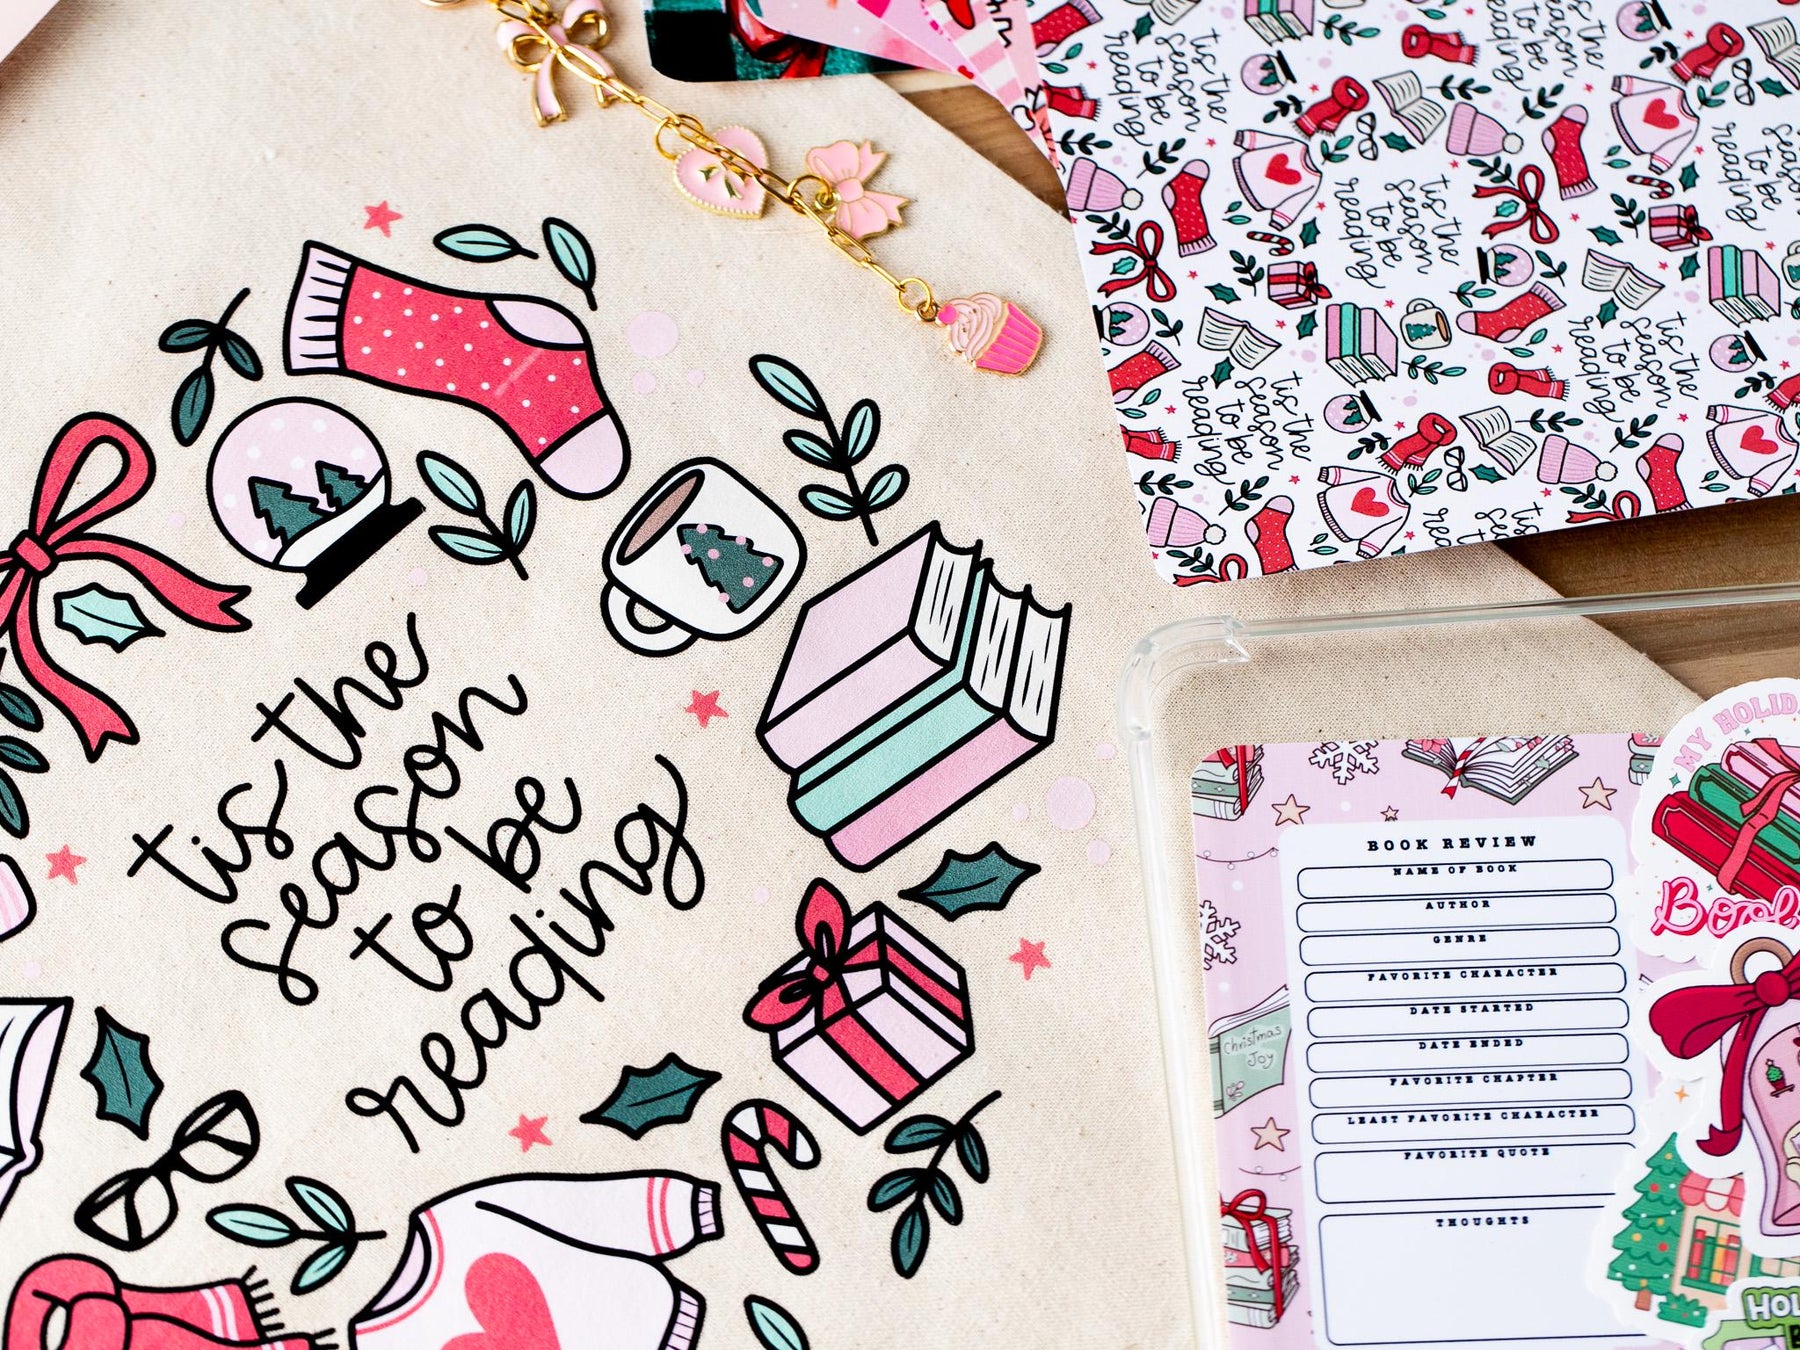 tis the
season
to be
reading
tis the
season
to be
reading
tis the
season
to be
reading
tis the
season
to be
reading
tis the
season
to be
reading
BOOK REVIEW
NAME OF BOOK
AUTHOR
GENRE
FAVORITE CHARACTER
DATE STARTED
DATE ENDED
FAVORITE CHAPTER
LEAST FAVORITE CHARACTER
FAVORITE QUOTE
THOUGHTS
Christmas
Joy
MY